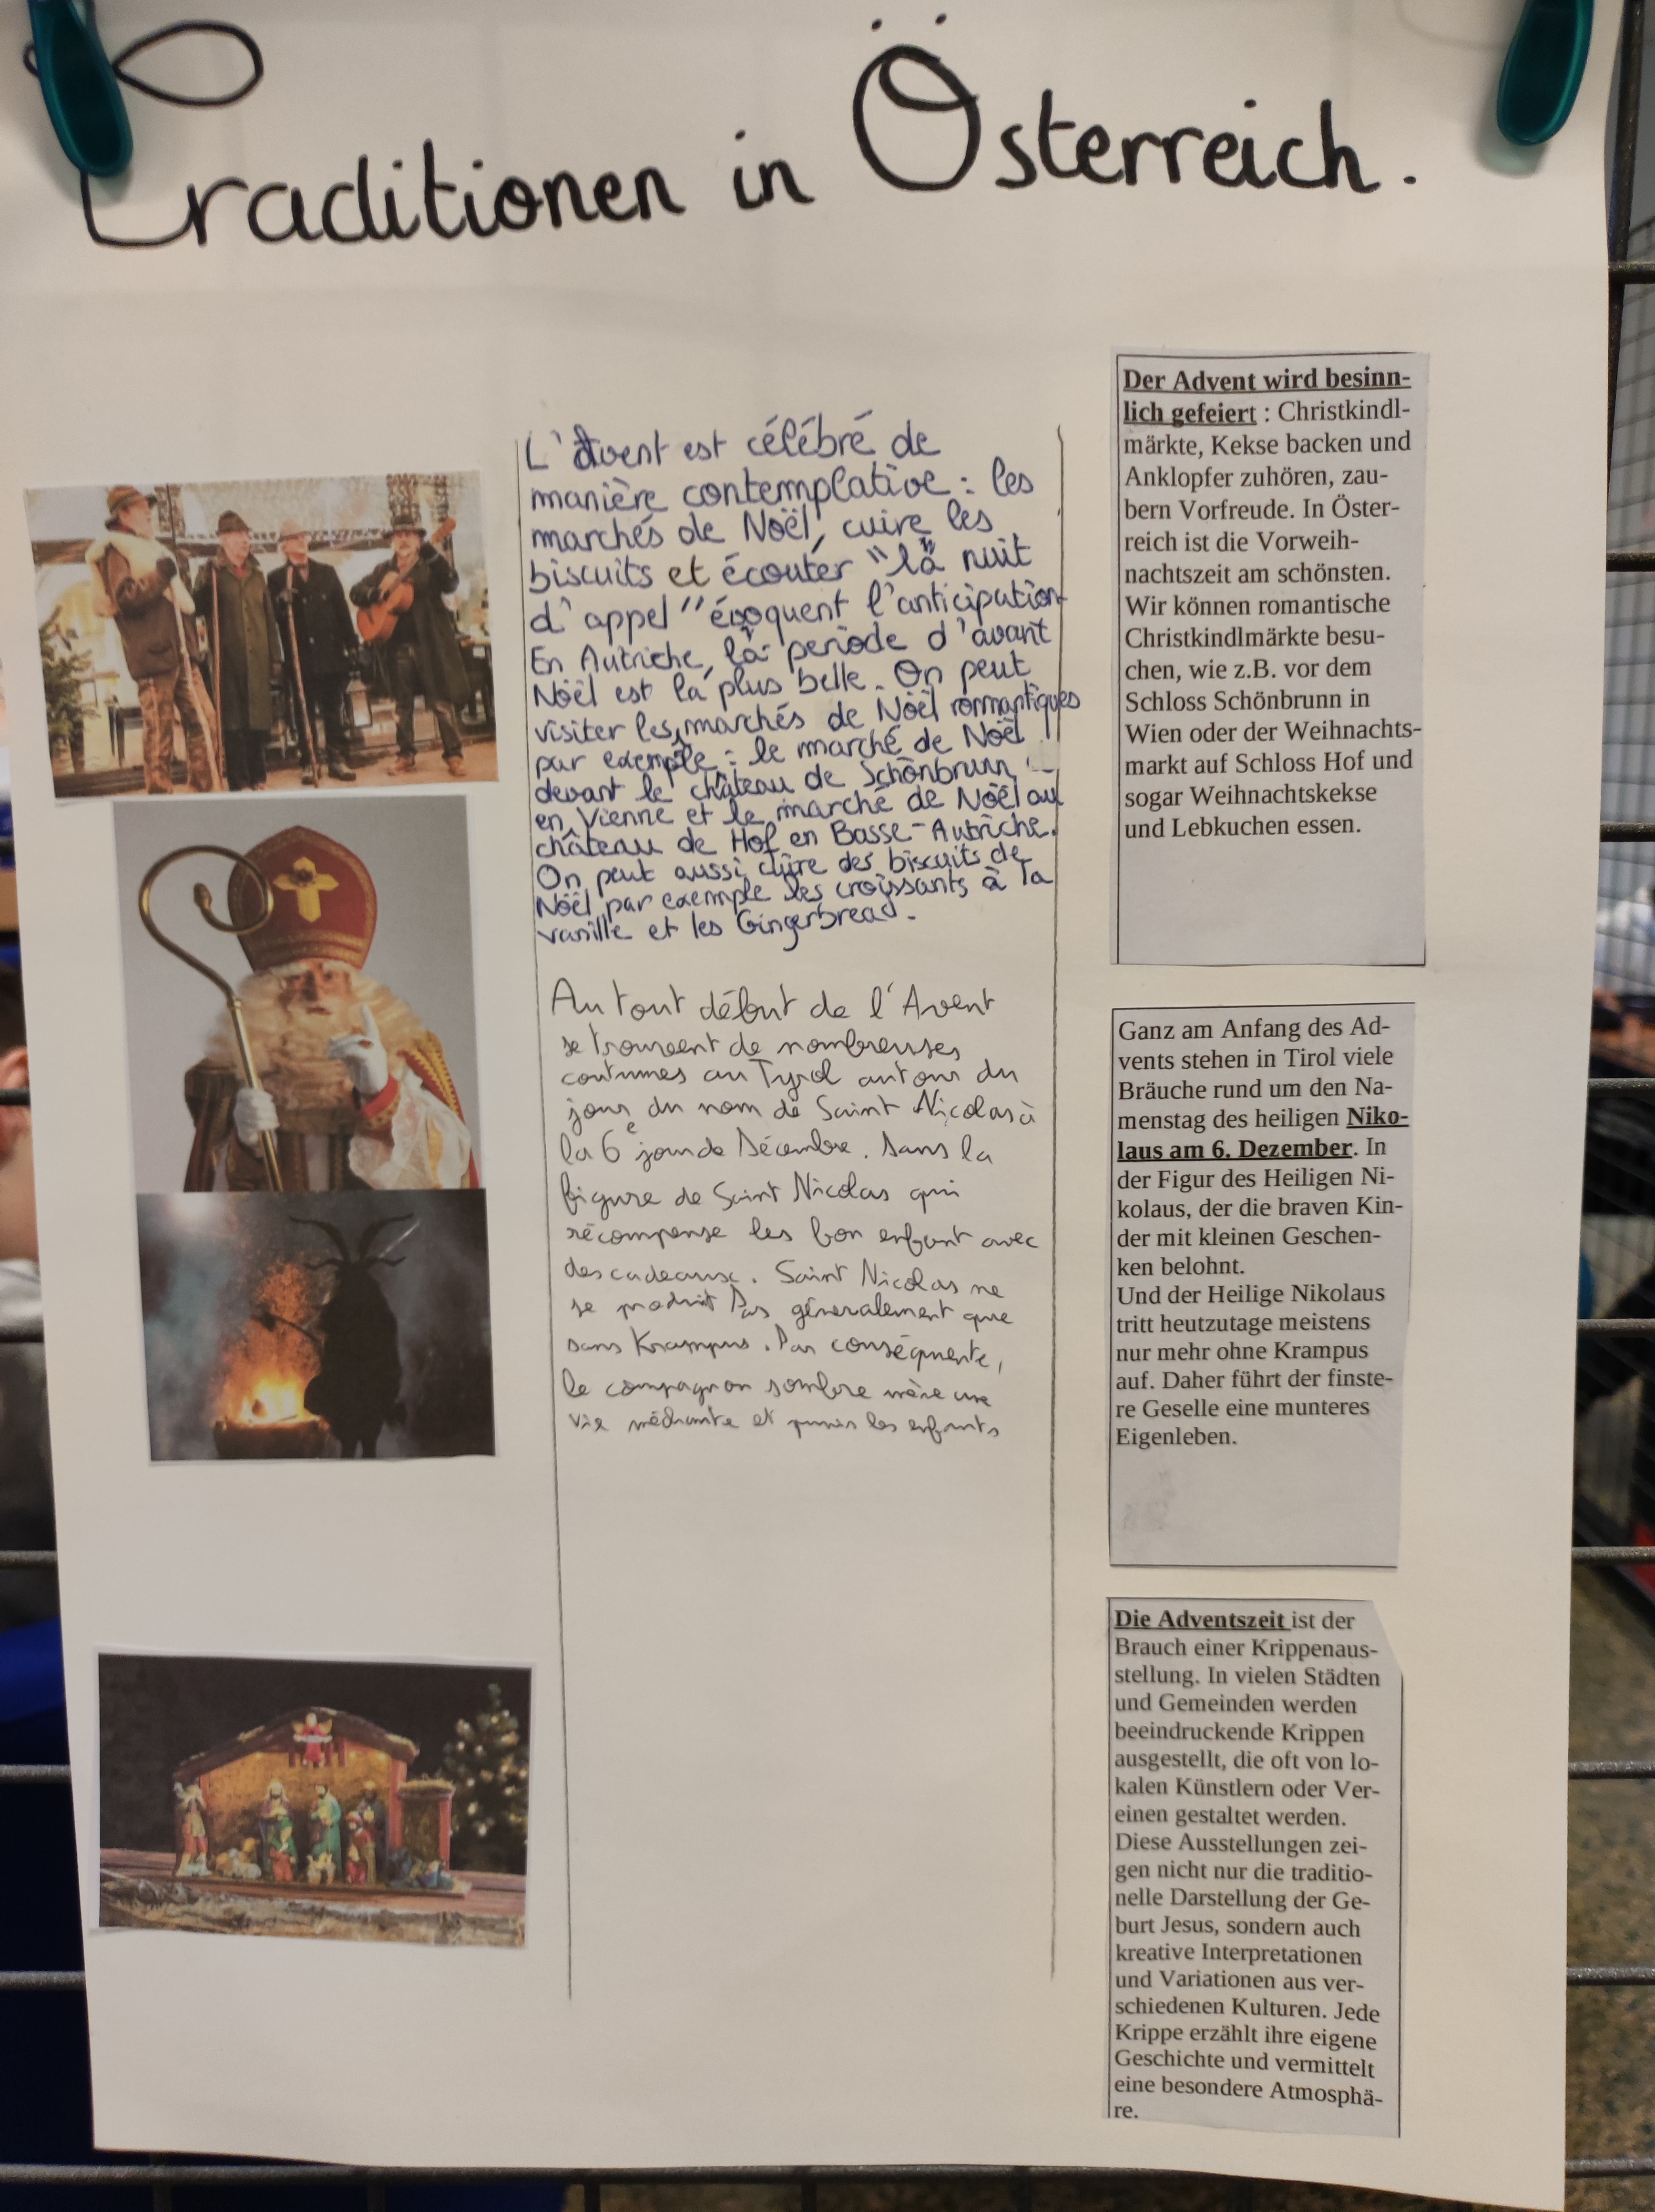 Traditionen in Österreich.
L'Avent est célébré de
manière contemplative : les
marchés de Noël, cuire les
biscuits et écouter "la nuit
d'appel" évoquent l'anticipation
En Autriche, la période d'avant
Noël est la plus belle. On peut
visiter les marchés de Noël rommantiques
par exemple : le marché de Noël
devant le château de Schönbrunn
en Vienne et le marché de Noël au
château de Hof en Basse-Autriche.
On peut aussi cuire des biscuits de
Noël par exemple les croissants à la
vanille et les Gingerbread.
Au tout début de l'Avent
se trouvent de nombreuses
coutumes au Tyrol autour du
jour du nom de Saint Nicolas à
la 6e jour de Décembre. Dans la
figure de Saint Nicolas qui
récompense les bon enfant avec
des cadeaux. Saint Nicolas ne
se produit Pas géneralement que
sans Krampus. Par conséquente,
le compagnon sombre mène une
vie méchante et punis les enfants
Der Advent wird besinn-
lich gefeiert : Christkindl-
märkte, Kekse backen und
Anklopfer zuhören, zau-
bern Vorfreude. In Öster-
reich ist die Vorweih-
nachtszeit am schönsten.
Wir können romantische
Christkindlmärkte besu-
chen, wie z.B. vor dem
Schloss Schönbrunn in
Wien oder der Weihnachts-
markt auf Schloss Hof und
sogar Weihnachtskekse
und Lebkuchen essen.
Ganz am Anfang des Ad-
vents stehen in Tirol viele
Bräuche rund um den Na-
menstag des heiligen Niko-
laus am 6. Dezember. In
der Figur des Heiligen Ni-
kolaus, der die braven Kin-
der mit kleinen Geschen-
ken belohnt.
Und der Heilige Nikolaus
tritt heutzutage meistens
nur mehr ohne Krampus
auf. Daher führt der finste-
re Geselle eine munteres
Eigenleben.
Die Adventszeit ist der
Brauch einer Krippenaus-
stellung. In vielen Städten
und Gemeinden werden
beeindruckende Krippen
ausgestellt, die oft von lo-
kalen Künstlern oder Ver-
einen gestaltet werden.
Diese Ausstellungen zei-
gen nicht nur die traditio-
nelle Darstellung der Ge-
burt Jesus, sondern auch
kreative Interpretationen
und Variationen aus ver-
schiedenen Kulturen. Jede
Krippe erzählt ihre eigene
Geschichte und vermittelt
eine besondere Atmosphä-
re.